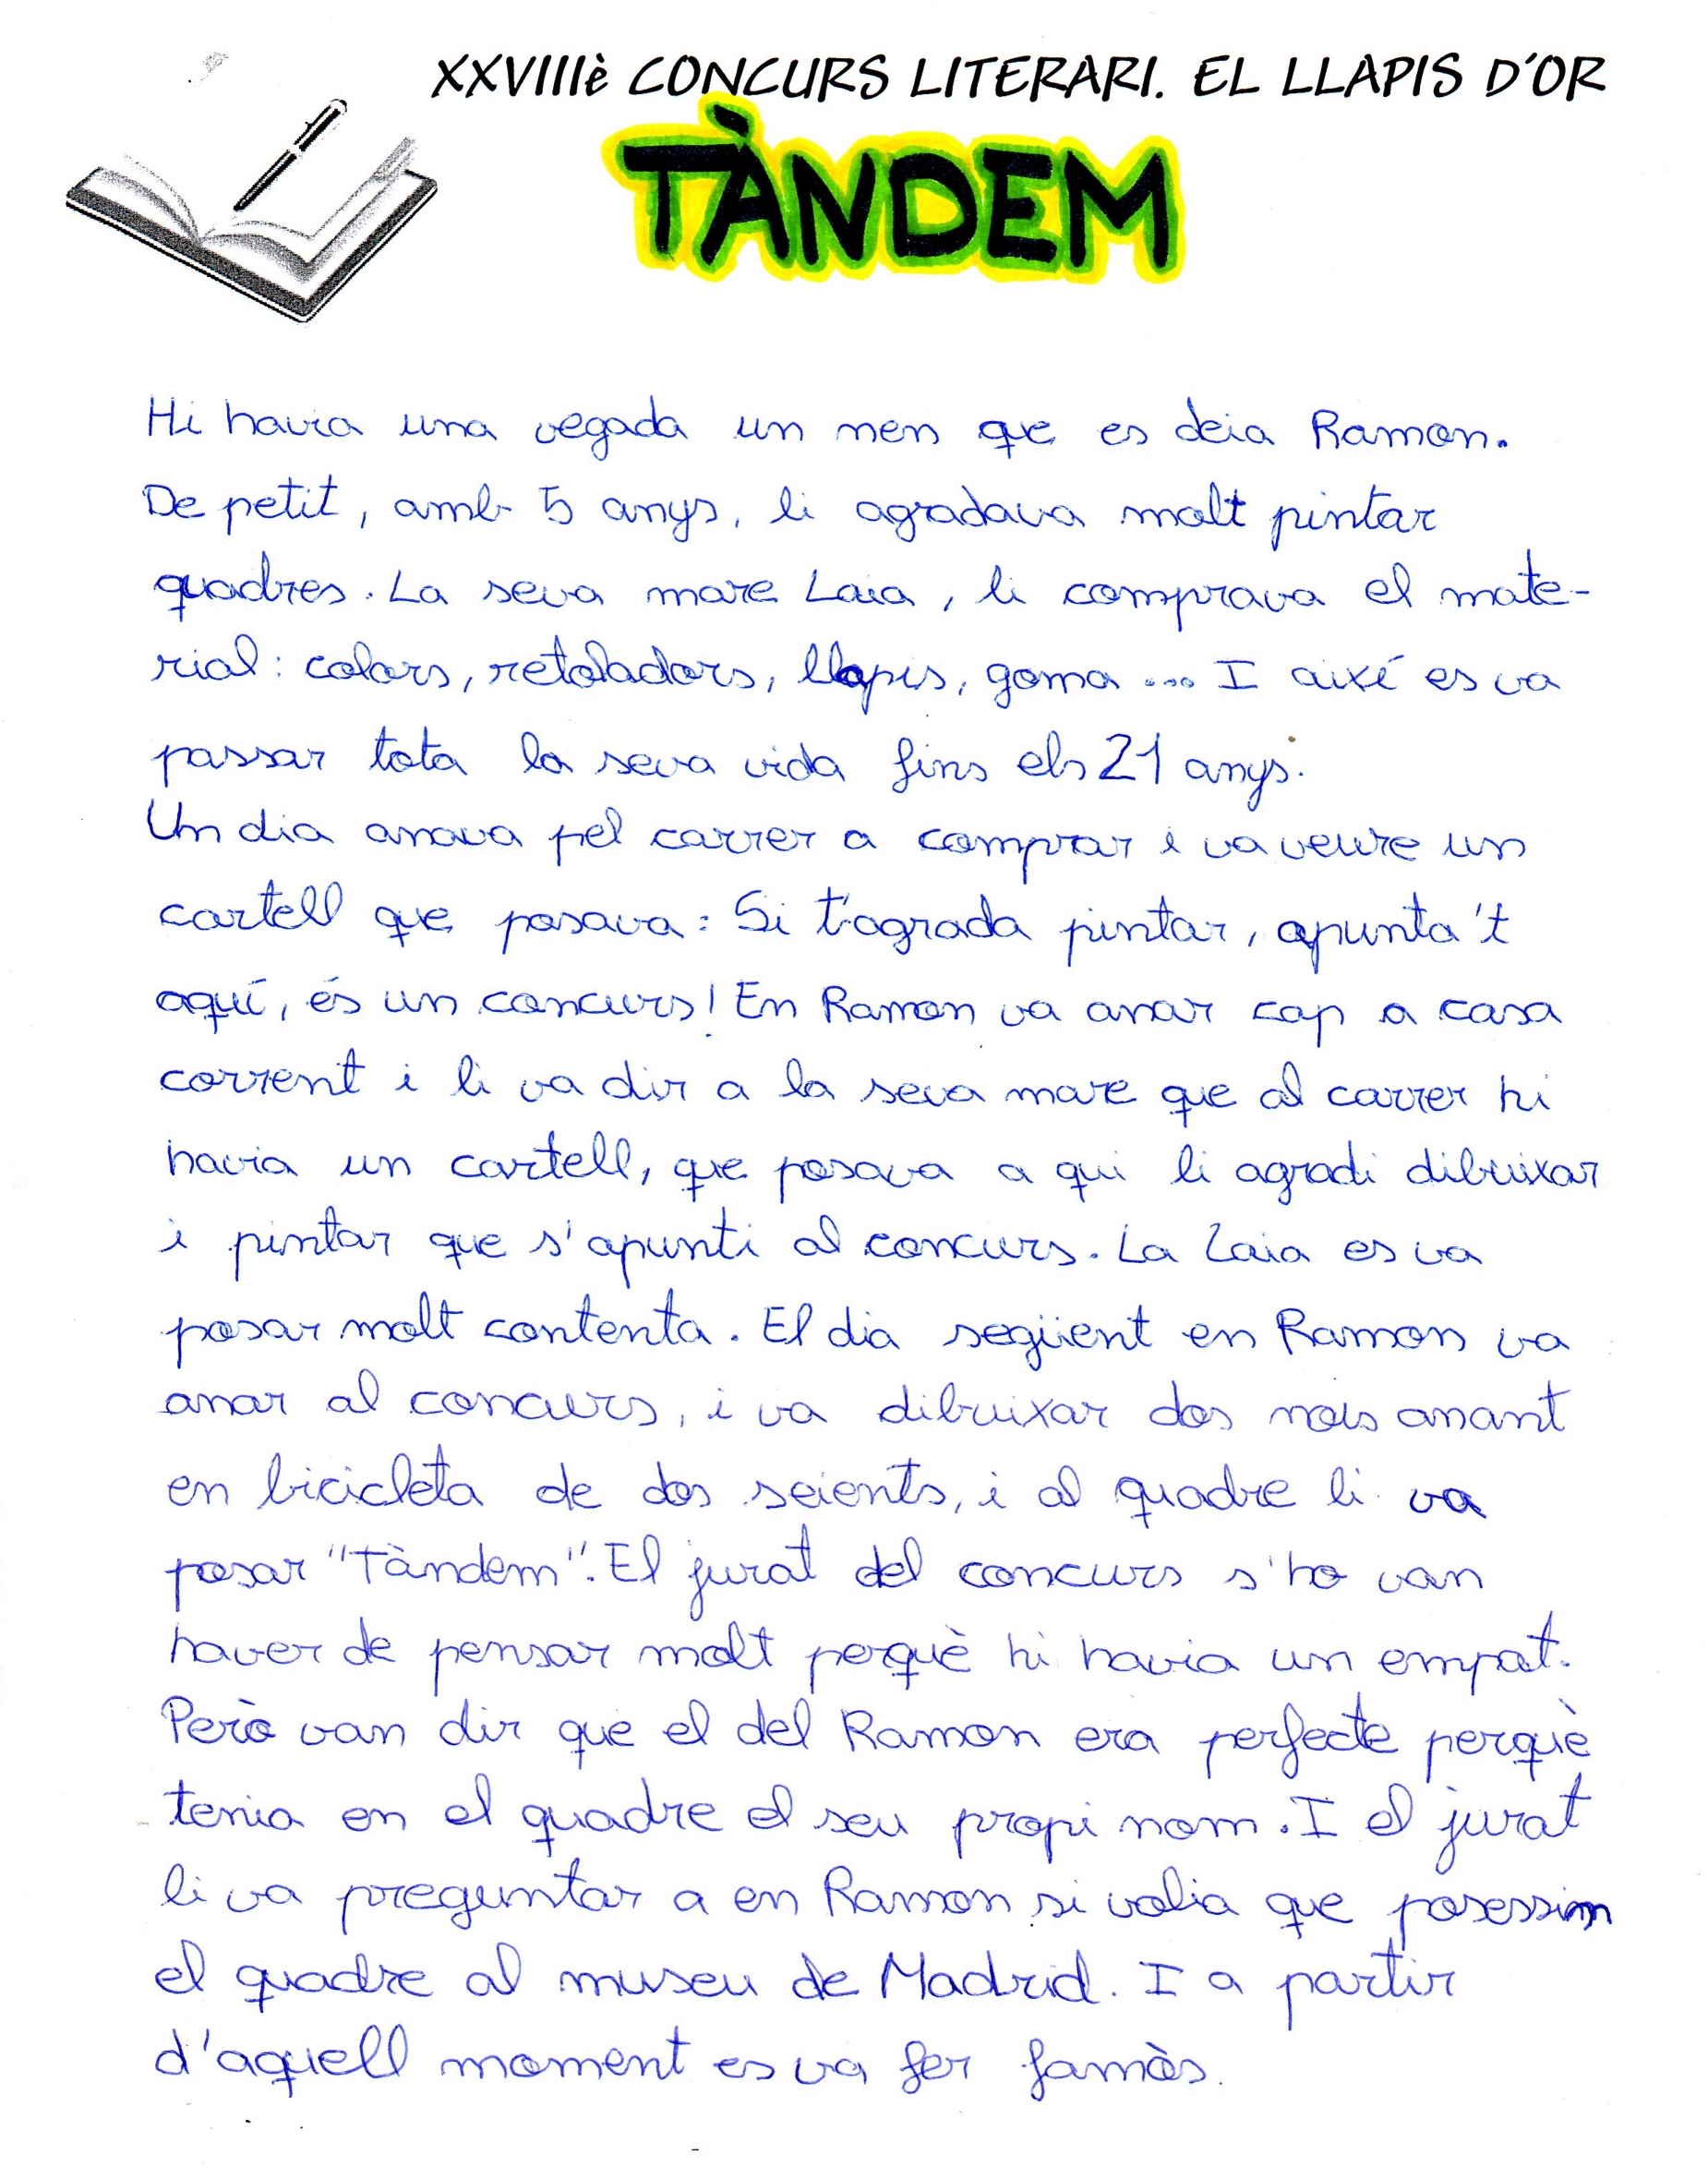 XXVIIIè CONCURS LITERARI. EL LLAPIS D'OR
TÀNDEM
Hi havia una vegada un nen que es deia Ramon.
De petit, amb 5 anys, li agradava molt pintar
quadres. La seva mare Laia, li comprava el mate-
rial: colors, retoladors, llapis, goma ... I així es va
passar tota la seva vida fins els 21 anys.
Un dia anava pel carrer a comprar i va veure un
cartell que posava: Si t'agrada pintar, apunta't
aquí, és un concurs! En Ramon va anar cap a casa
corrent i li va dir a la seva mare que al carrer hi
havia un cartell, que posava a qui li agradi dibuixar
i pintar que s'apunti al concurs. La Laia es va
posar molt contenta. El dia següent en Ramon va
anar al concurs, i va dibuixar dos nois anant
en bicicleta de dos seients, i al quadre li va
posar "Tàndem". El jurat del concurs s'ho van
haver de pensar molt perquè hi havia un empat.
Però van dir que el del Ramon era perfecte perquè
tenia en el quadre el seu propi nom. I el jurat
li va preguntar a en Ramon si volia que posessim
el quadre al museu de Madrid. I a partir
d'aquell moment es va fer famòs.